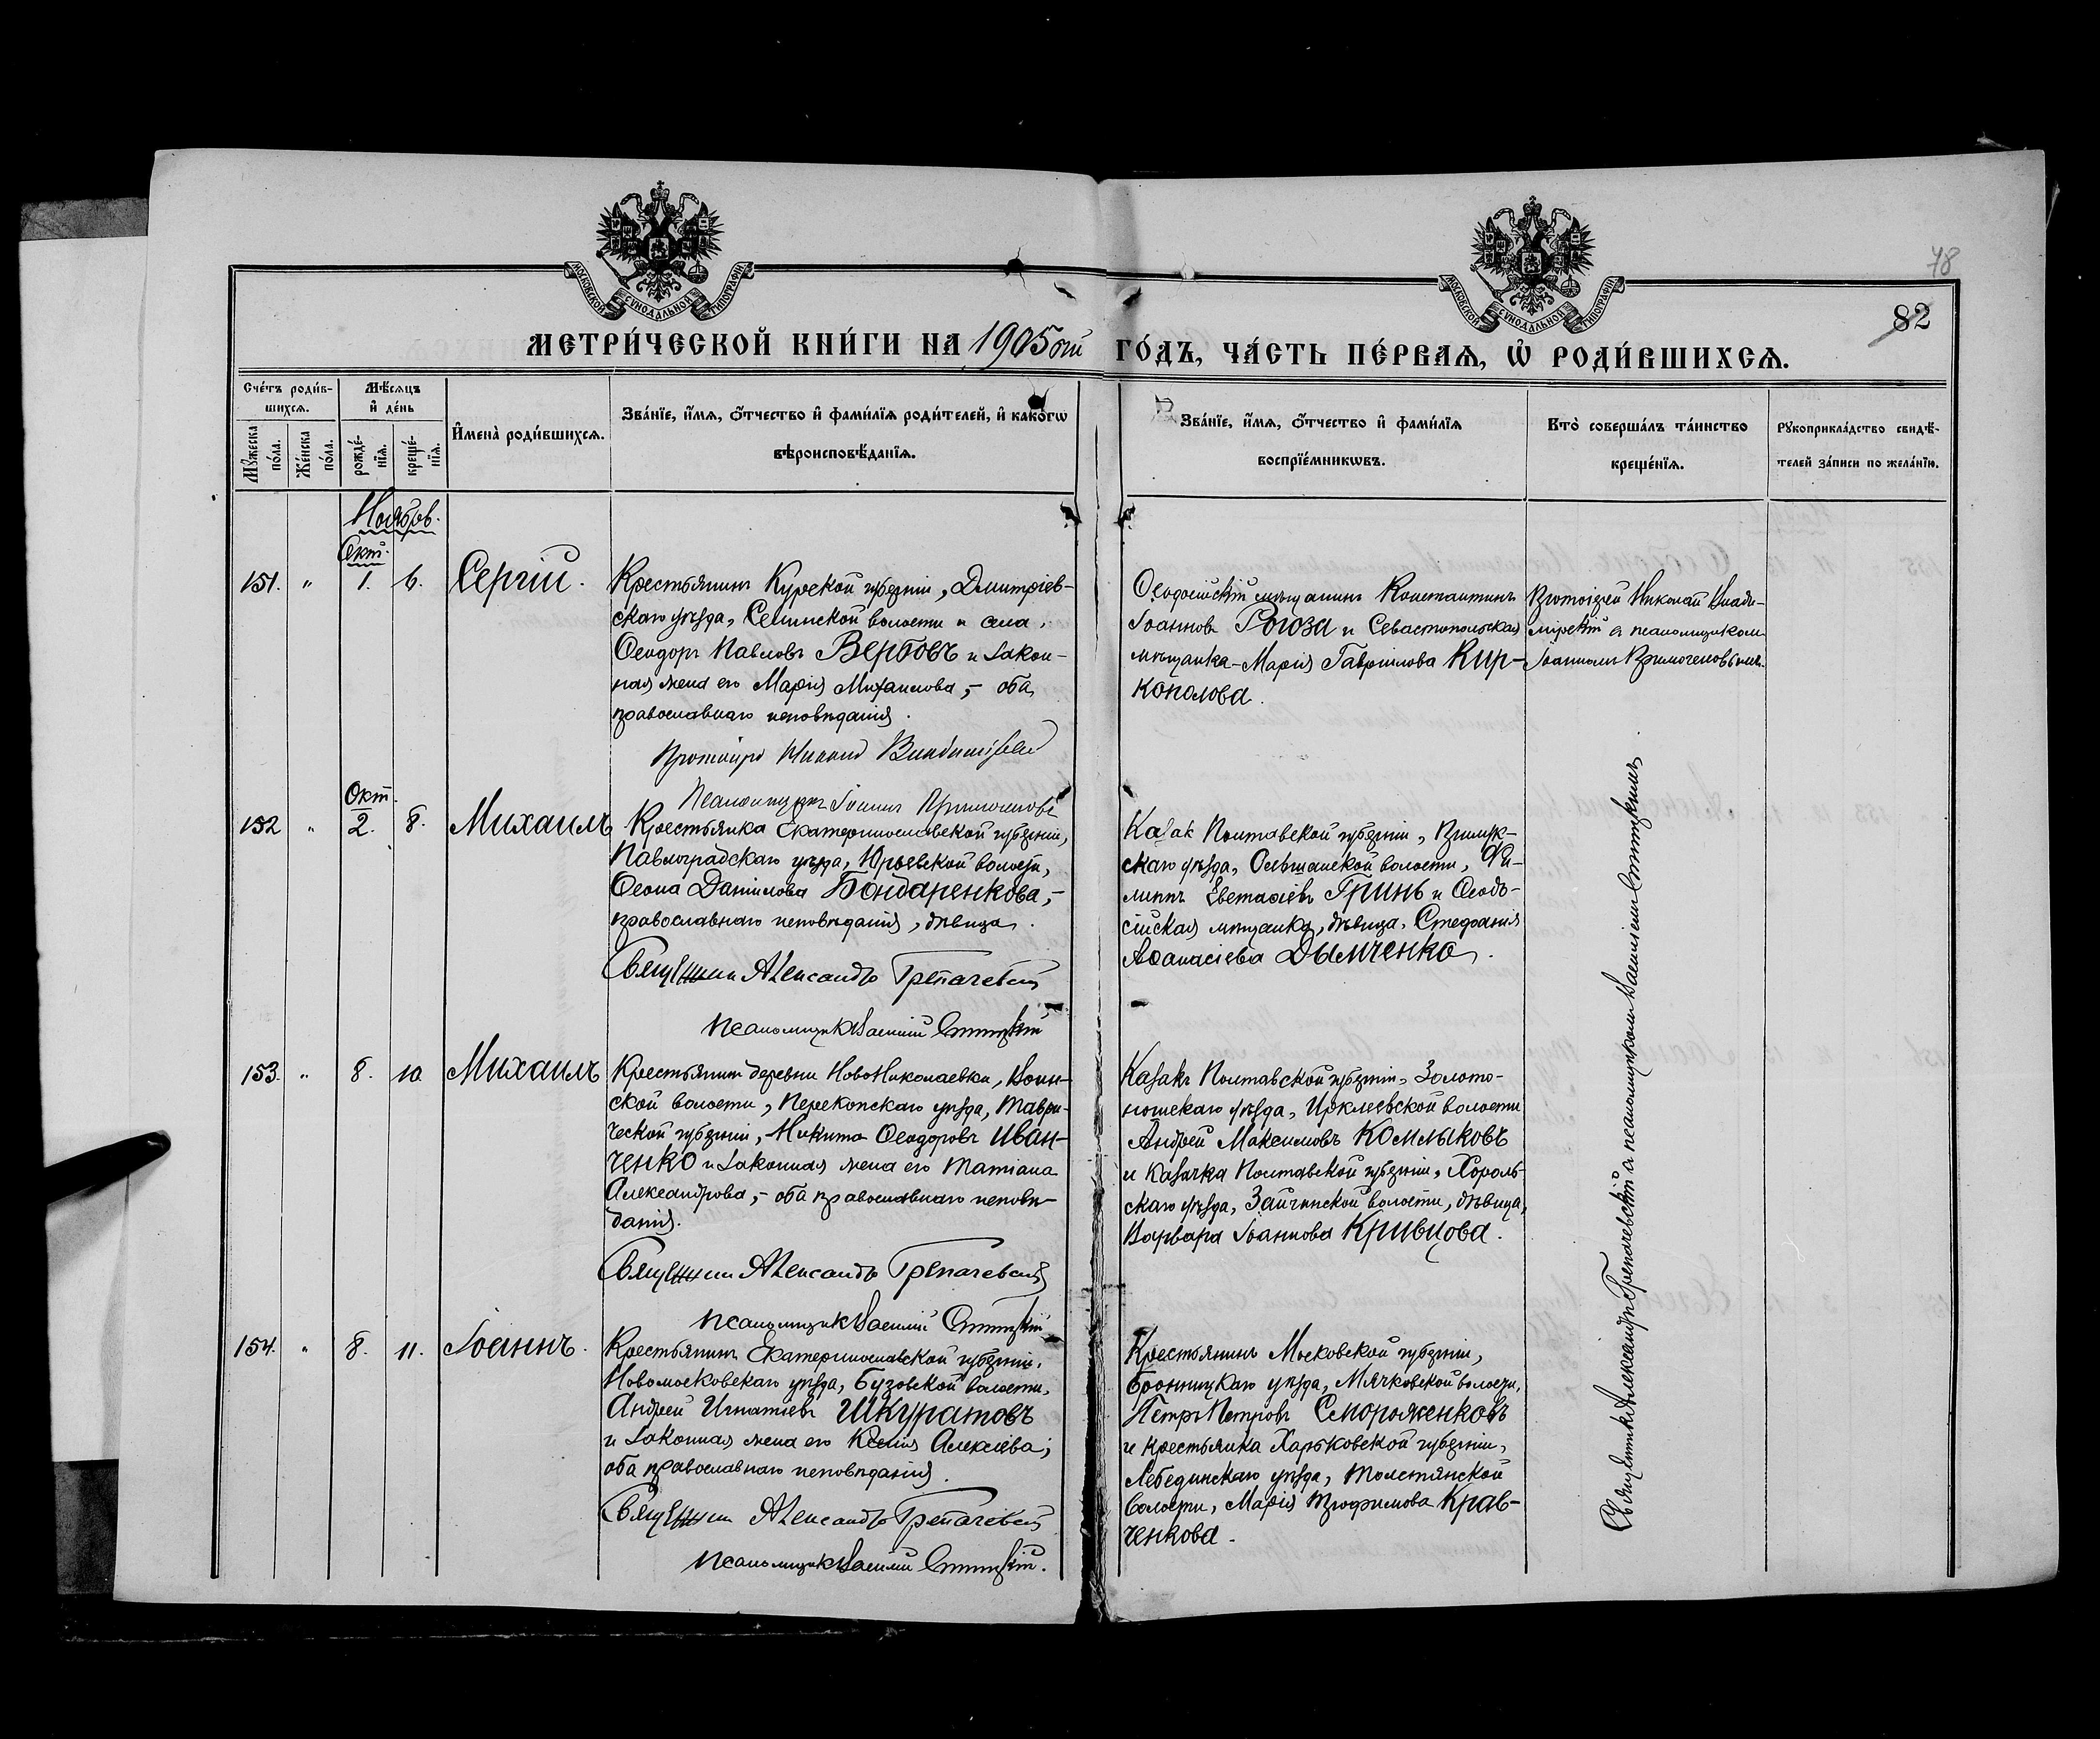 МОСКОВСКОЙ СѴНОДАЛЬНОЙ ТИПОГРАФІИ
МОСКОВСКОЙ СѴНОДАЛЬНОЙ ТИПОГРАФІИ
78
82
МЕТРИ́ЧЕСКОЙ КНИ́ГИ НА 1905ый ГО́ДЪ, ЧА́СТЬ ПЕ́РВАѦ, Ѡ҆ РОДИ́ВШИХСѦ.
Сче́тъ роди́в-
шихсѧ.
Мѣ́сѧцъ
и҆ де́нь
Мꙋ́жеска
по́ла.
Же́нска
по́ла.
рожде́-
нїѧ.
креще́-
нїѧ.
И҆мена̀ роди́вшихсѧ.
Зва́нїе, и҆́мѧ, ѻ҆́тчество и҆ фами́лїѧ роди́телей, и҆ како́гѡ
вѣроисповѣ́данїѧ.
Зва́нїе, и҆́мѧ, ѻ҆́тчество и҆ фами́лїѧ
воспрїе́мникѡвъ.
Кто̀ соверша́лъ та́инство
креще́нїѧ.
Рꙋкоприкла́дство свидѣ́-
телей за́писи по жела́нїю.
Ноябрь.
Окт.
151. " 1. 6. Сергій.
Крестьянинъ Курской губерніи, Дмитріев-
скаго уѣзда, Селинской волости и села,
Ѳеодоръ Павловъ Вербовъ и закон-
ная жена его Марія Михаилова, – оба
православнаго исповѣданія.
Протоіерей Николай Владимірскій
Псаломщикъ Іоаннъ
Ѳеодосійскій мѣщанинъ Константинъ
Іоанновъ Рогоза и Севастопольская
мѣщанка – Марія Гавріилова Кир-
кополова.
Протоіерей Николай Влади-
мірскій съ псаломщикомъ
Іоанномъ
Окт.
152 " 2. 8. Михаилъ
Крестьянка Екатеринославской губерніи,
Павлоградскаго уѣзда, Юрьевской волости,
Ѳеона Даніилова Бондаренкова, –
православнаго исповѣданія, дѣвица.
Священникъ Александръ Трепачевскій
Псаломщикъ Василій
Казак Полтавской губерніи, Прилук-
скаго уѣзда, Ольшанской волости, Фи-
липпъ Евстафіевъ Гринь и Ѳеодо-
сійская мѣщанка, дѣвица, Стефанія
Аѳанасіева Дымченко.
153. " 8. 10 Михаилъ
Крестьянинъ деревни НовоНиколаевки, Воин-
ской волости, Перекопскаго уѣзда, Таври-
ческой губерніи, Никита Ѳеодоровъ Иван-
ченко и законная жена его Татіана
Александрова, – оба православнаго исповѣ-
данія.
Священникъ Александръ Трепачевскій
Псаломщикъ Василій
Казакъ Полтавской губерніи, Золото-
ношскаго уѣзда, Ирклеевской волости
Андрей Максимовъ Комлыковъ
и казачка Полтавской губерніи, Хороль-
скаго уѣзда, Зайчинской волости, дѣвица,
Варвара Іоаннова Кривцова.
154. " 8. 11. Іоаннъ.
Крестьянинъ Екатеринославской губерніи,
Новомосковскаго уѣзда, Бузовской волости,
Андрей Игнатіевъ Шкуратовъ
и законная жена его Ксенія Алексіева;
оба православнаго исповѣданія.
Священникъ Александръ Трепачевскій
Псаломщикъ Василій
Крестьянинъ Московской губерніи,
Бронницкаго уѣзда, Мячковской волости,
Петръ Петровъ Смороженковъ
и крестьянка Харьковской губерніи,
Лебединскаго уѣзда, Толстянской
волости, Марія Трофимова Крав-
ченкова.
Священникъ Александръ Трепачевскій съ псаломщикомъ Василіемъ